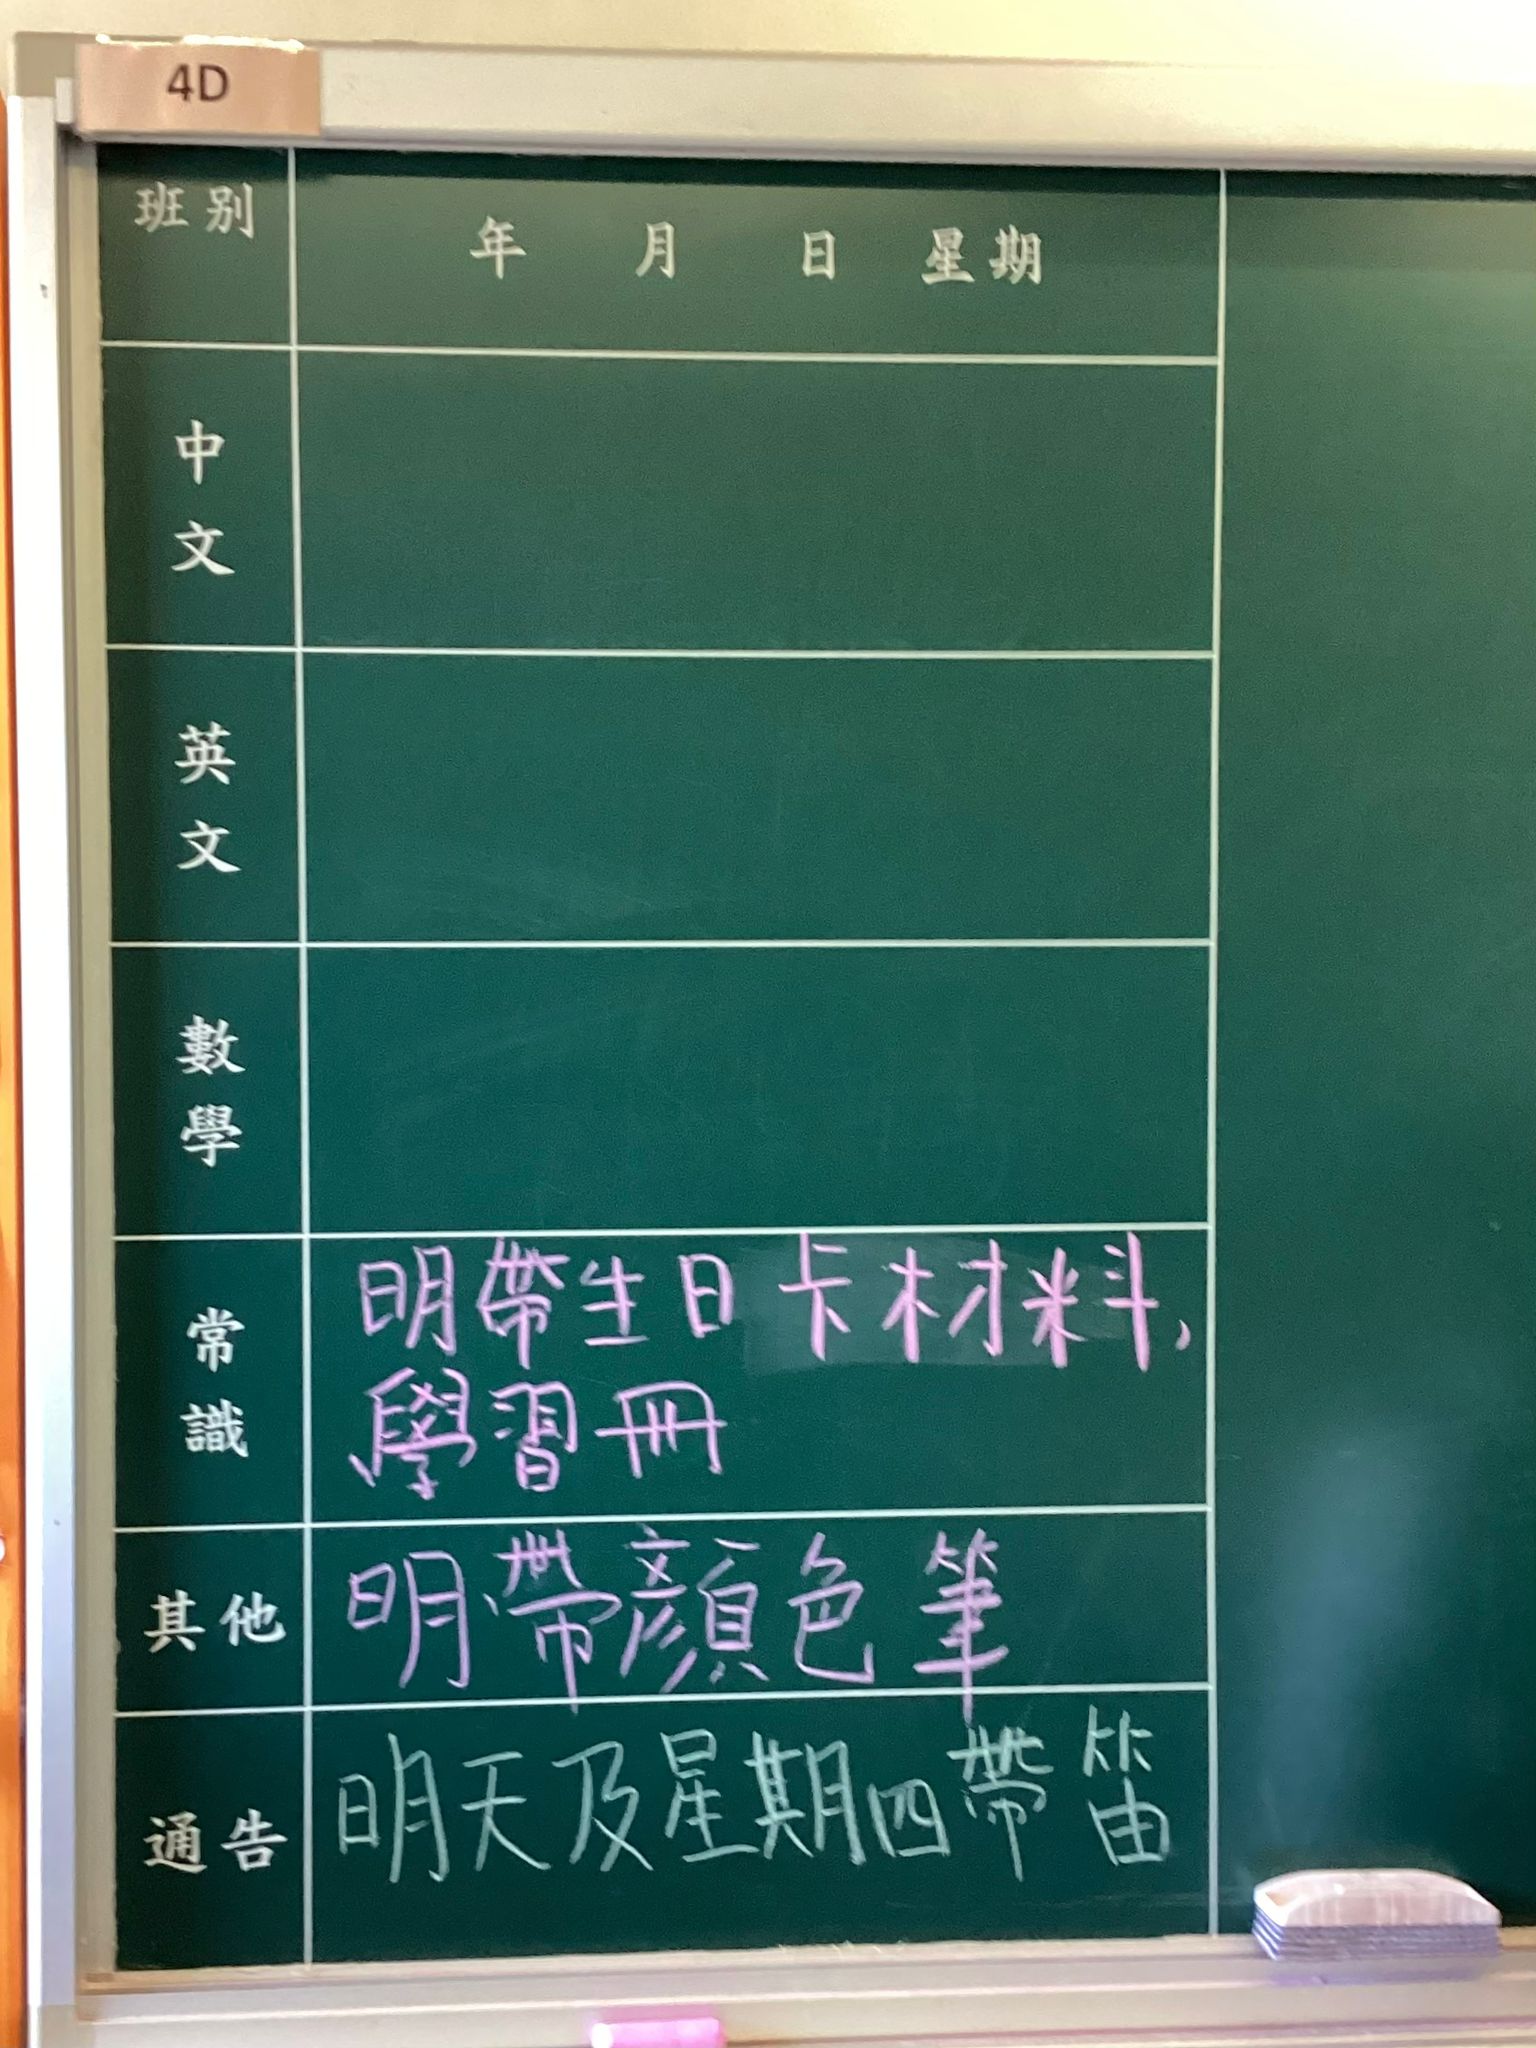 4D
班別
年 月 日 星期
中文
英文
數學
常識
明帶生日卡材料，
學習冊
其他
明帶顏色筆
通告
明天及星期四帶笛